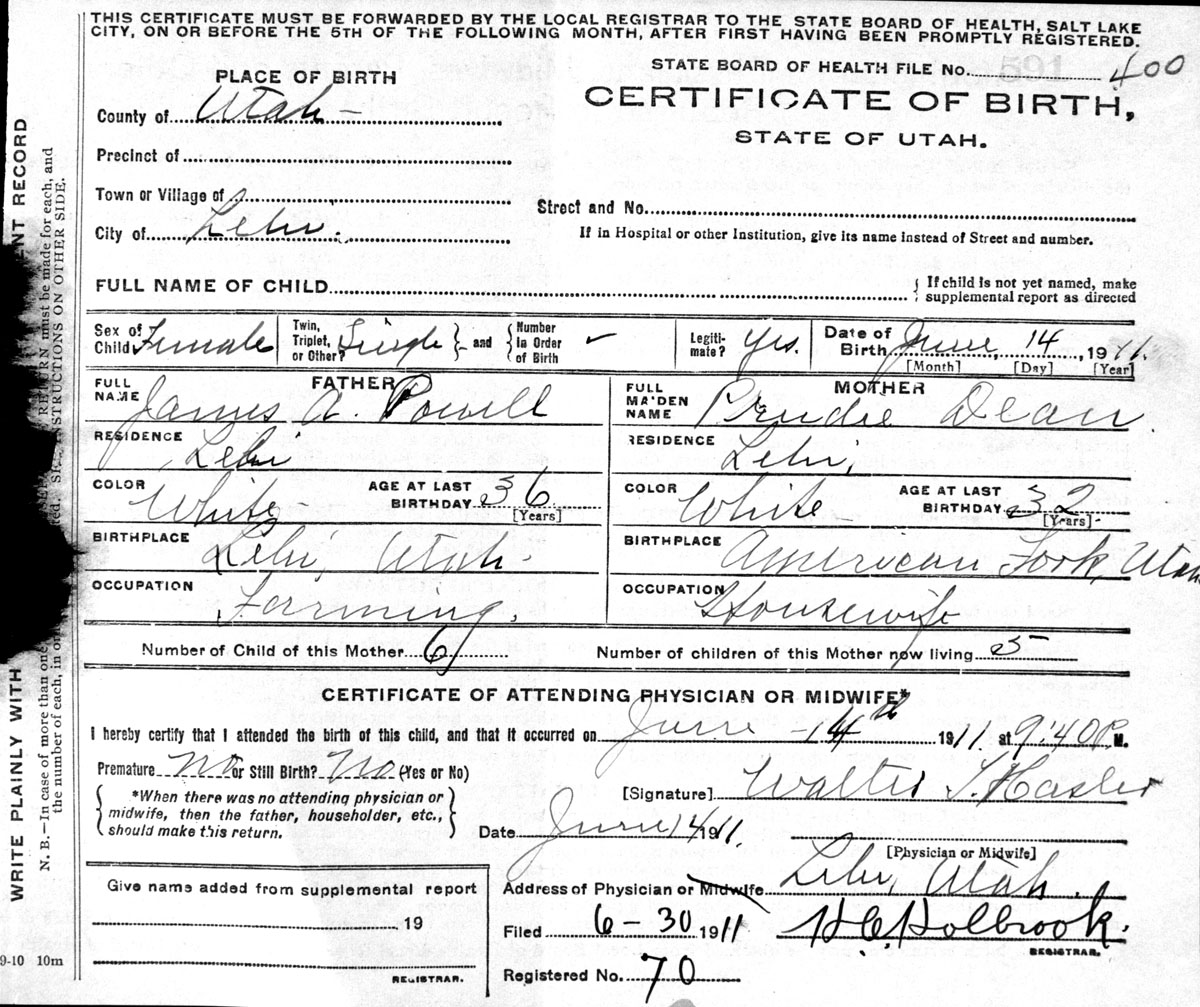 THIS CERTIFICATE MUST BE FORWARDED BY THE LOCAL REGISTRAR TO THE STATE BOARD OF HEALTH, SALT LAKE
CITY, ON OR BEFORE THE 5TH OF THE FOLLOWING MONTH, AFTER FIRST HAVING BEEN PROMPTLY REGISTERED.
STATE BOARD OF HEALTH FILE No. 400
CERTIFICATE OF BIRTH,
STATE OF UTAH.
PLACE OF BIRTH
County of Utah
Precinct of
Town or Village of
City of Lehi.
Street and No.
If in Hospital or other Institution, give its name instead of Street and number.
FULL NAME OF CHILD
{ If child is not yet named, make
supplemental report as directed
Sex of Child Female
Twin, Triplet, or Other? Single } and { Number in Order of Birth -
Legiti-mate? Yes.
Date of Birth June, 14, 1911.
[Month] [Day] [Year]
FATHER
FULL NAME James A. Powell
RESIDENCE Lehi
COLOR White
AGE AT LAST BIRTHDAY 36 [Years]
BIRTHPLACE Lehi, Utah.
OCCUPATION Farming.
MOTHER
FULL MAIDEN NAME Prudie Dean
RESIDENCE Lehi,
COLOR White
AGE AT LAST BIRTHDAY 32 [Years]
BIRTHPLACE American Fork, Utah
OCCUPATION Housewife
Number of Child of this Mother 6
Number of children of this Mother now living 5
CERTIFICATE OF ATTENDING PHYSICIAN OR MIDWIFE*
I hereby certify that I attended the birth of this child, and that it occurred on June 14th 1911. at 9:40 P. M.
Premature No or Still Birth? No (Yes or No)
{ *When there was no attending physician or
midwife, then the father, householder, etc.,
should make this return. }
[Signature] Walter T. Hasler
Date June 14 1911.
[Physician or Midwife]
Address of Physician or Midwife Lehi, Utah.
Filed 6-30 1911 H C Holbrook.
REGISTRAR.
Registered No. 70
Give name added from supplemental report
19
REGISTRAR.
WRITE PLAINLY WITH
ENT RECORD
N. B.—In case of more than one
RETURN must be made for each, and
the number of each, in o
STRUCTIONS ON OTHER SIDE.
9-10 10m